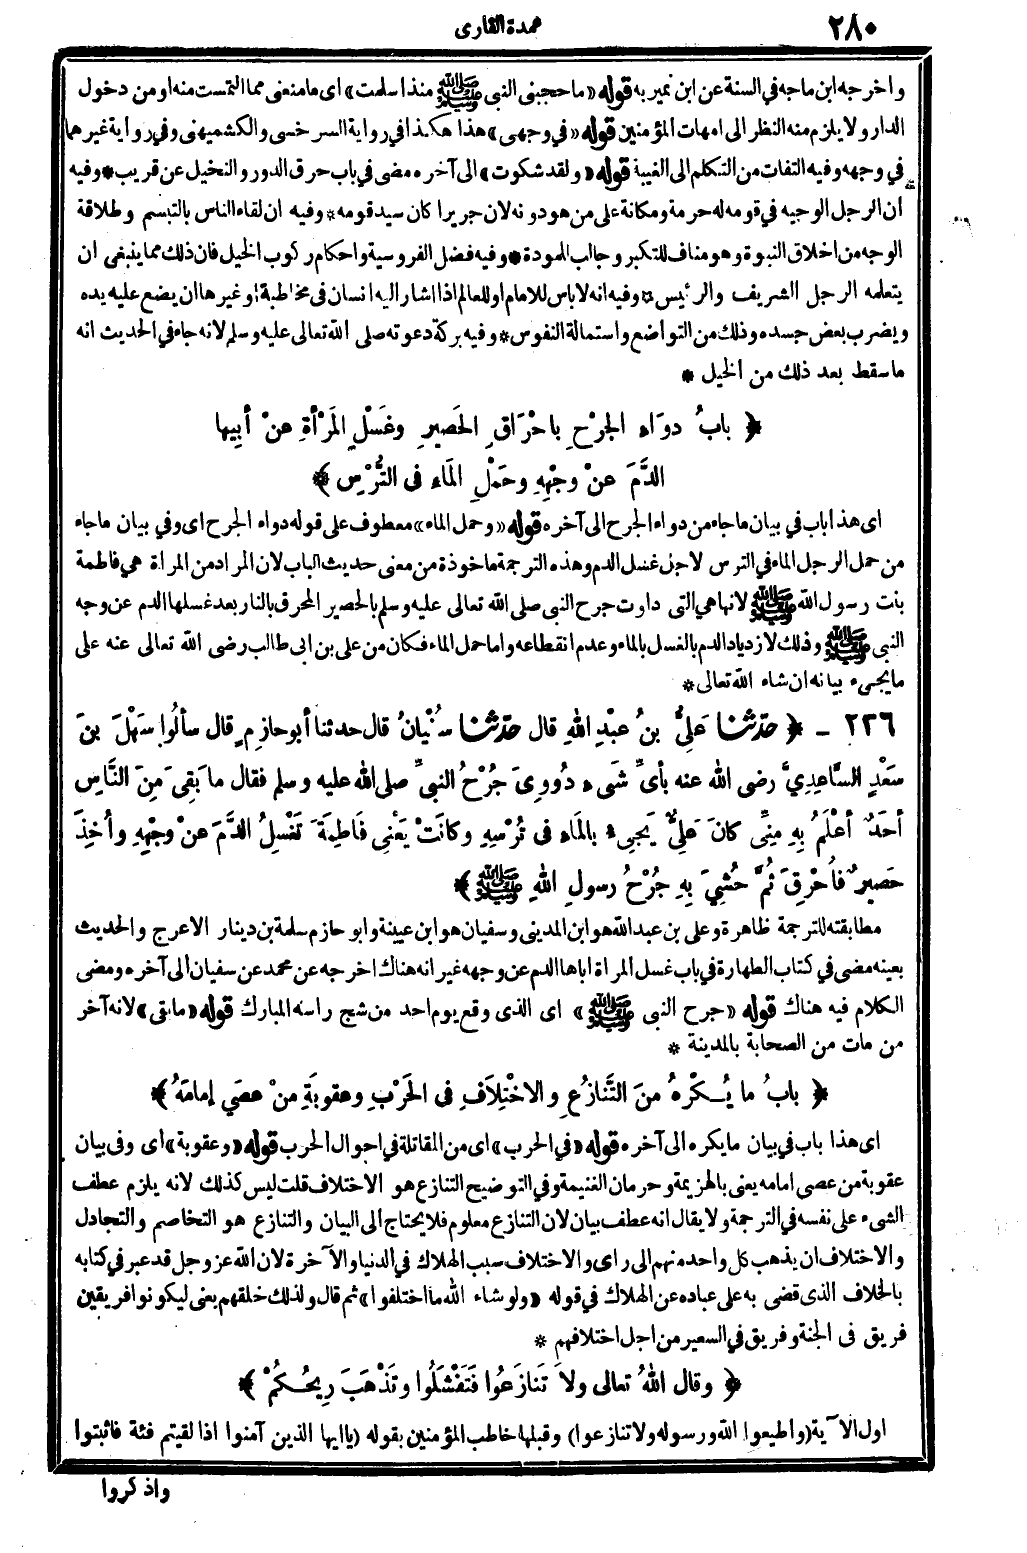 ٢٨٠
عمدة القارى
واخرجه ابن ماجه في السنة عن ابن نمير به قوله «ما حجبنى النبى ﷺ منذ اسلمت» اى ما منعنى مما التمست منه او من دخول
الدار ولا يلزم منه النظر الى امهات المؤمنين قوله «في وجهى» هذا هكذا في رواية السرخسى والكشميهنى وفي رواية غيرهما
في وجهه وفيه التفات من التكلم الى الغيبة قوله «ولقد شكوت» الى آخره مضى في باب حرق الدور والنخيل عن قريب * وفيه
أن الرجل الوجيه في قومه له حرمة ومكانة على من هو دونه لان جريرا كان سيد قومه * وفيه ان لقاء الناس بالتبسم وطلاقة
الوجه من اخلاق النبوة وهو مناف للتكبر وجالب المودة * وفيه فضل الفروسية واحكام ركوب الخيل فان ذلك مما ينبغى ان
يتعلمه الرجل الشريف والرئيس * وفيه انه لا باس للامام او للعالم اذا اشار اليه انسان فى مخاطبة او غيرها ان يضع عليه يده
ويضرب بعض جسده وذلك من التواضع واستمالة النفوس * وفيه بركة دعوته صلى الله تعالى عليه وسلم لانه جاء في الحديث انه
ما سقط بعد ذلك من الخيل *
﴿ بابُ دوَاءِ الجرْحِ باحْرَاقِ الحَصيرِ وغَسْلِ المَرْأةِ عنْ أبِيها
الدَّمَ عنْ وجْهِهِ وحَمْلِ المَاءِ فى التُّرْسِ ﴾
اى هذا باب في بيان ما جاء من دواء الجرح الى آخره قوله «وحمل الماء» معطوف على قوله دواء الجرح اى وفي بيان ماجاء
من حمل الرجل الماء في الترس لاجل غسل الدم وهذه الترجمة ماخوذة من معنى حديث الباب لان المراد من المراة هي فاطمة
بنت رسول الله ﷺ لانها هي التى داوت جرح النبى صلى الله تعالى عليه وسلم بالحصير المحرق بالنار بعد غسلها الدم عن وجه
النبى ﷺ وذلك لازدياد الدم بالغسل بالماء وعدم انقطاعه واما حمل الماء فكان من على بن ابى طالب رضى الله تعالى عنه على
ما يجىء بيانه ان شاء الله تعالى *
٢٣٦ - ﴿ حدّثنا عَلِيُّ بنُ عبْدِ اللهِ قال حدّثنا سُفْيانُ قال حدثنا أبو حازِمٍ قال سألُوا سَهْلَ بنَ
سَعْدٍ السَّاعِدِيَّ رضى الله عنه بأىِّ شَىءٍ دُووِىَ جَرْحُ النبىِّ صلى الله عليه وسلم فقال ما بَقِىَ مِنَ النَّاسِ
أحَدٌ أعْلَمُ بِهِ مِنِّى كانَ عَلِىٌّ يَجِىءُ بالمَاءِ فى تُرْسِهِ وكانَتْ يَعْنِى فاطِمَةَ تَغْسِلُ الدَّمَ عنْ وجْهِهِ وأُخِذَ
حَصيرٌ فأُحْرِقَ ثُمَّ حُشِىَ بِهِ جُرْحُ رسولِ اللهِ ﷺ ﴾
مطابقته للترجمة ظاهرة وعلى بن عبد الله هو ابن المدينى وسفيان هو ابن عيينة وابو حازم سلمة بن دينار الاعرج والحديث
بعينه مضى في كتاب الطهارة في باب غسل المراة اباها الدم عن وجهه غير انه هناك اخرجه عن محمد عن سفيان الى آخره ومضى
الكلام فيه هناك قوله «جرح النبى ﷺ» اى الذى وقع يوم احد من شج راسه المبارك قوله «ما بقى» لانه آخر
من مات من الصحابة بالمدينة *
﴿ بابُ ما يُكْرَهُ منَ التَّنازُعِ والاخْتِلافِ فى الحَرْبِ وعقوبَةِ منْ عصَي إمامَهُ ﴾
اى هذا باب في بيان ما يكره الى آخره قوله «في الحرب» اى من المقاتلة في احوال الحرب قوله «وعقوبة» اى وفى بيان
عقوبة من عصى امامه يعنى بالهزيمة وحرمان الغنيمة وفي التوضيح التنازع هو الاختلاف قلت ليس كذلك لانه يلزم عطف
الشىء على نفسه في الترجمة ولا يقال انه عطف بيان لان التنازع معلوم فلا يحتاج الى البيان والتنازع هو التخاصم والتجادل
والاختلاف ان يذهب كل واحد منهم الى راى والاختلاف سبب الهلاك في الدنيا والآخرة لان الله عز وجل قد عبر في كتابه
بالخلاف الذى قضى به على عباده عن الهلاك في قوله «ولو شاء الله ما اختلفوا» ثم قال ولذلك خلقهم يعنى ليكونوا فريقين
فريق فى الجنة وفريق في السعير من اجل اختلافهم *
﴿ وقال اللهُ تعالى ولاَ تَنازَعُوا فَتَفْشَلُوا وتَذْهَبَ رِيحُكُمْ ﴾
اول الآية (واطيعوا الله ورسوله ولا تنازعوا) وقبلها خاطب المؤمنين بقوله (يا ايها الذين آمنوا اذا لقيتم فئة فاثبتوا
واذكروا